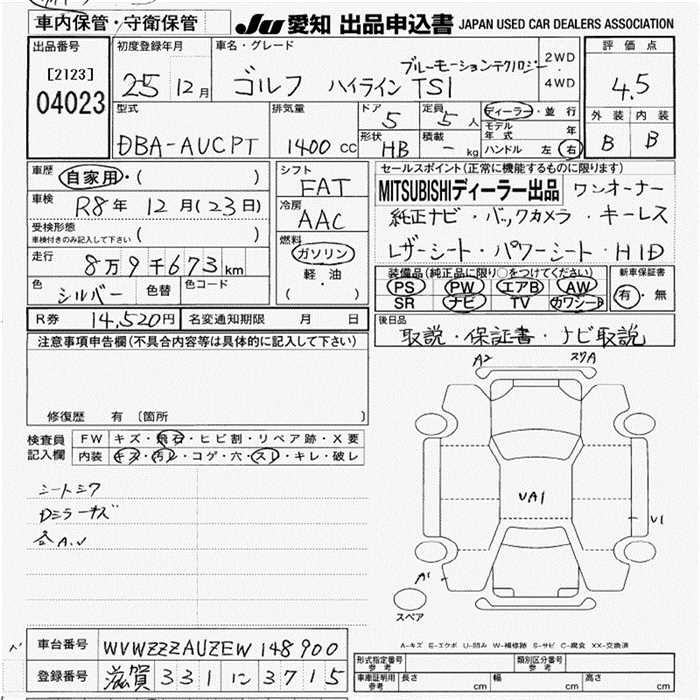 車内保管・守衛保管
JU 愛知 出品申込書 JAPAN USED CAR DEALERS ASSOCIATION
出品番号
[2123]
04023
初度登録年月
25 12月
車名・グレード
ブルーモーションテクノロジー
ゴルフ ハイライン TSI
2WD
4WD
評価点
4.5
外装 内装
B B
型式
DBA-AUCPT
排気量
1400 cc
ドア
5
定員
5 人
形状
HB
積載
- kg
ディーラー・並行
モデル年式 年
ハンドル 左 右
車歴
自家用・( )
車検
R8年 12月(23日)
受検形態
車検付きのみ記入して下さい ( )
走行
8万9千673km
色
シルバー
色替
色コード
シフト
FAT
冷房
AAC
燃料
ガソリン
軽・油
( )
セールスポイント(正常に機能するものに限ります)
MITSUBISHIディーラー出品 ワンオーナー
純正ナビ・バックカメラ・キーレス
レザーシート・パワーシート・HID
装備品(純正品に限り○をつけてください)
PS PW エアB AW
SR ナビ TV カワシート
新車保証書
有・無
R券 14,520円 名変通知期限 月 日
後日品
取説・保証書・ナビ取説
注意事項申告欄(不具合内容等は具体的に記入して下さい)
修復歴 有 〔箇所
検査員
記入欄
FW キズ・飛石・ヒビ割・リペア跡・X要
内装 キズ・汚レ・コゲ・穴・スレ・キレ・破レ
シートシワ
Dミラーキズ
各A.U
A2
スリA
UA1
U1
A1
スペア
A-キズ E-エクボ U-凹み W-補修跡 S-サビ C-腐食 XX-交換済
車台番号 WVWZZZAUZEW148900
登録番号 滋賀 331 に 3715
形式指定番号
参考
類別区分番号
参考
車庫証明用
参考
長さ cm 幅 cm 高さ cm